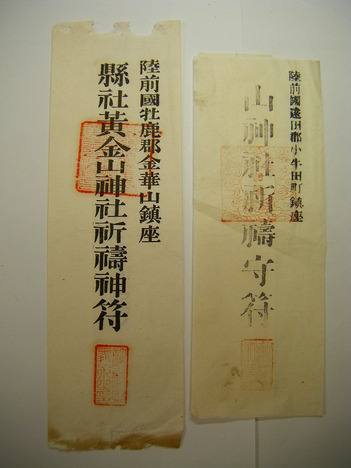 陸前國牡鹿郡金華山鎮座
縣社黃金山神社祈禱神符
陸前國遠田郡小牛田町鎮座
山神社祈禱守符